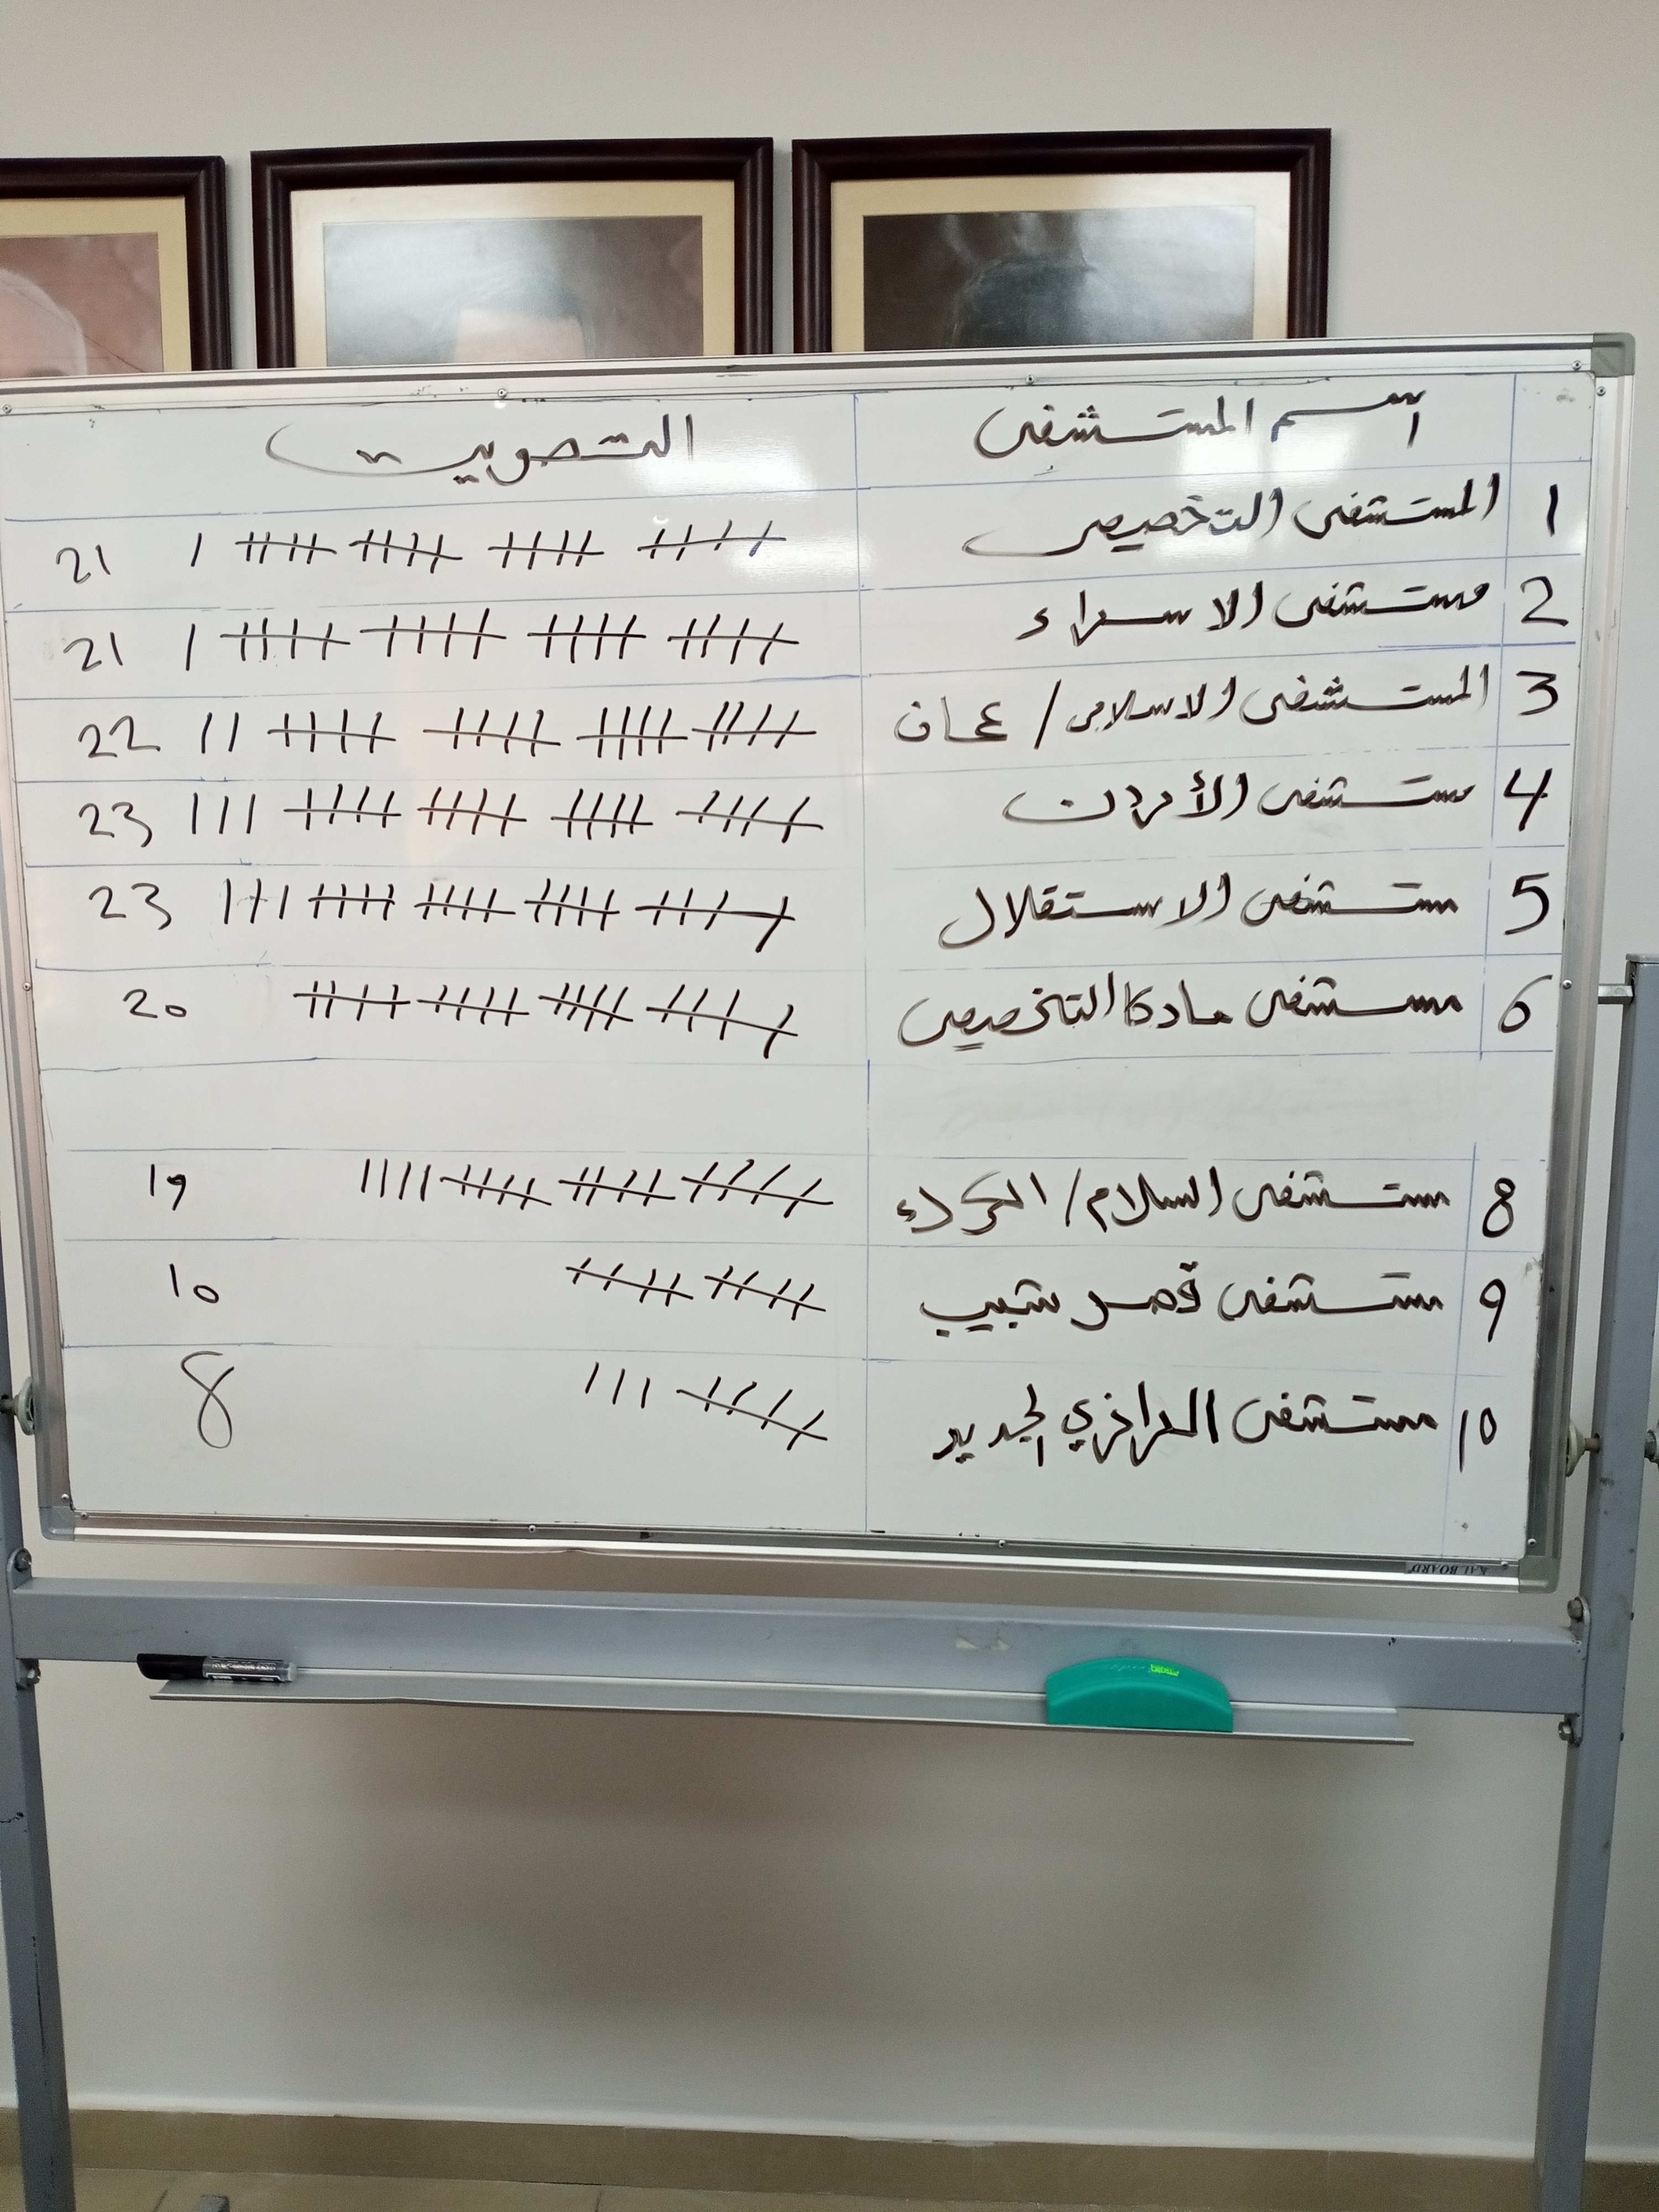 اسم المستشفى التصويت
1 المستشفى التخصيصي 21
2 مستشفى الاسراء 21
3 المستشفى الاسلامي / عمان 22
4 مستشفى الأردن 23
5 مستشفى الاستقلال 23
6 مستشفى ماركا التخصيصي 20
8 مستشفى السلام / الكرك 19
9 مستشفى قصر شبيب 10
10 مستشفى الرازي الجديد 8
KAL BOARD